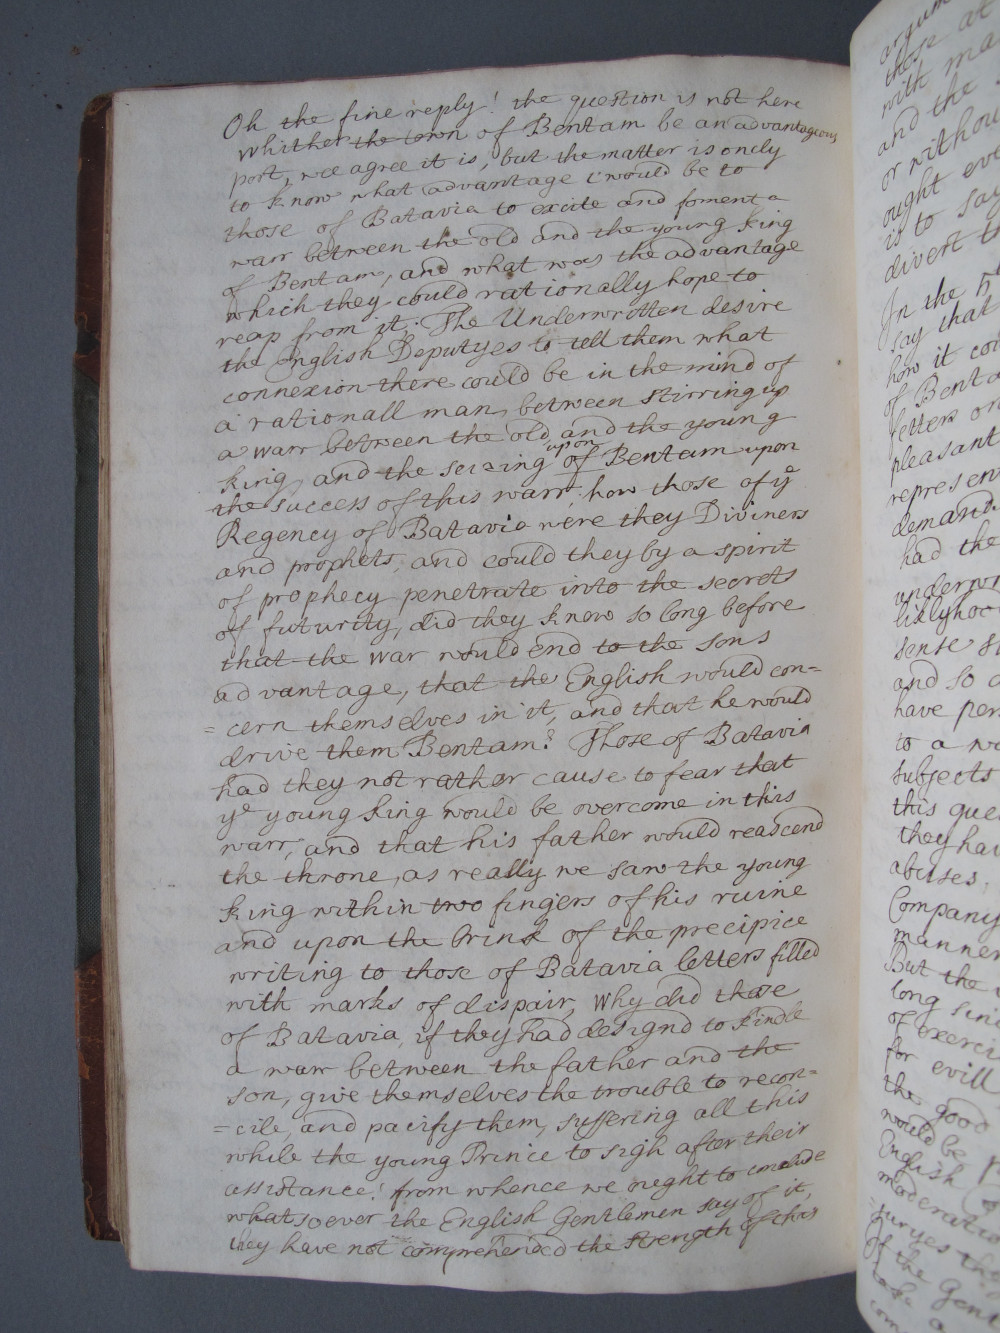 Oh the fine reply! the question is not here
whither the town of Bentam be an advantageous
port, wee agree it is, but the matter is only
to know what advantage i'would be to
those of Batavia to excite and foment a
warr between the old and the young king
of Bentam, and what was the advantage
which they could rationally hope to
reap from it. The Underwrotten desire
the English Deputyes to tell them what
connexion there could be in the mind of
a rationall man, between stirring up
a warr between the old and the young
king, and the seizing of Bentam upon
upon
the success of this warr: how those of ye
Regency of Batavia were they Diviners
and prophets, and could they by a spirit
of prophecy penetrate into the secrets
of futurity, did they know so long before
that the war would end to the sons
advantage, that the English would con=
=cern themselves in it, and that he would
drive them Bentam? Those of Batavia
had they not rather cause to fear that
ye young king would be overcome in this
warr, and that his father would reascend
the throne, as really we saw the young
king within two fingers of his ruine
and upon the brink of the precipice
writing to those of Batavia letters filled
with marks of dispair, why did those
of Batavia, if they had designd to kindle
a warr between the father and the
son, give themselves the trouble to recon=
=cile, and pacify them, suffering all this
while the young Prince to sigh after their
assistance! from whence we ought to conclude
whatsoever the English Gentlemen say of it,
they have not comprehended the strength of this
argum
those at
with ma
and the
or withou
ought eve
is to say
divert th
In the 5
say that
how it cou
of Benta
letters or
pleasant
represen
demand
had the
underwr
liklyhoo
sense
and so
have per
to a
subjects
this que
they hav
abuses,
Company
manner
But the
long sinc
of exerci
for evill
the good
would be
English
moderatio
=juryes th
If the Gent